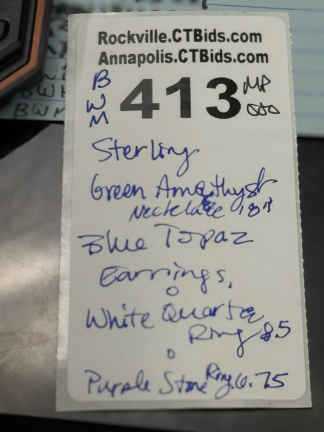 Rockville.CTBids.com
Annapolis.CTBids.com
B
W
M
413
Sterling
Green Amethyst
Necklace 18"
Blue Topaz
Earrings,
White Quartz
Ring 8.5
Purple Stone Ring 6.75